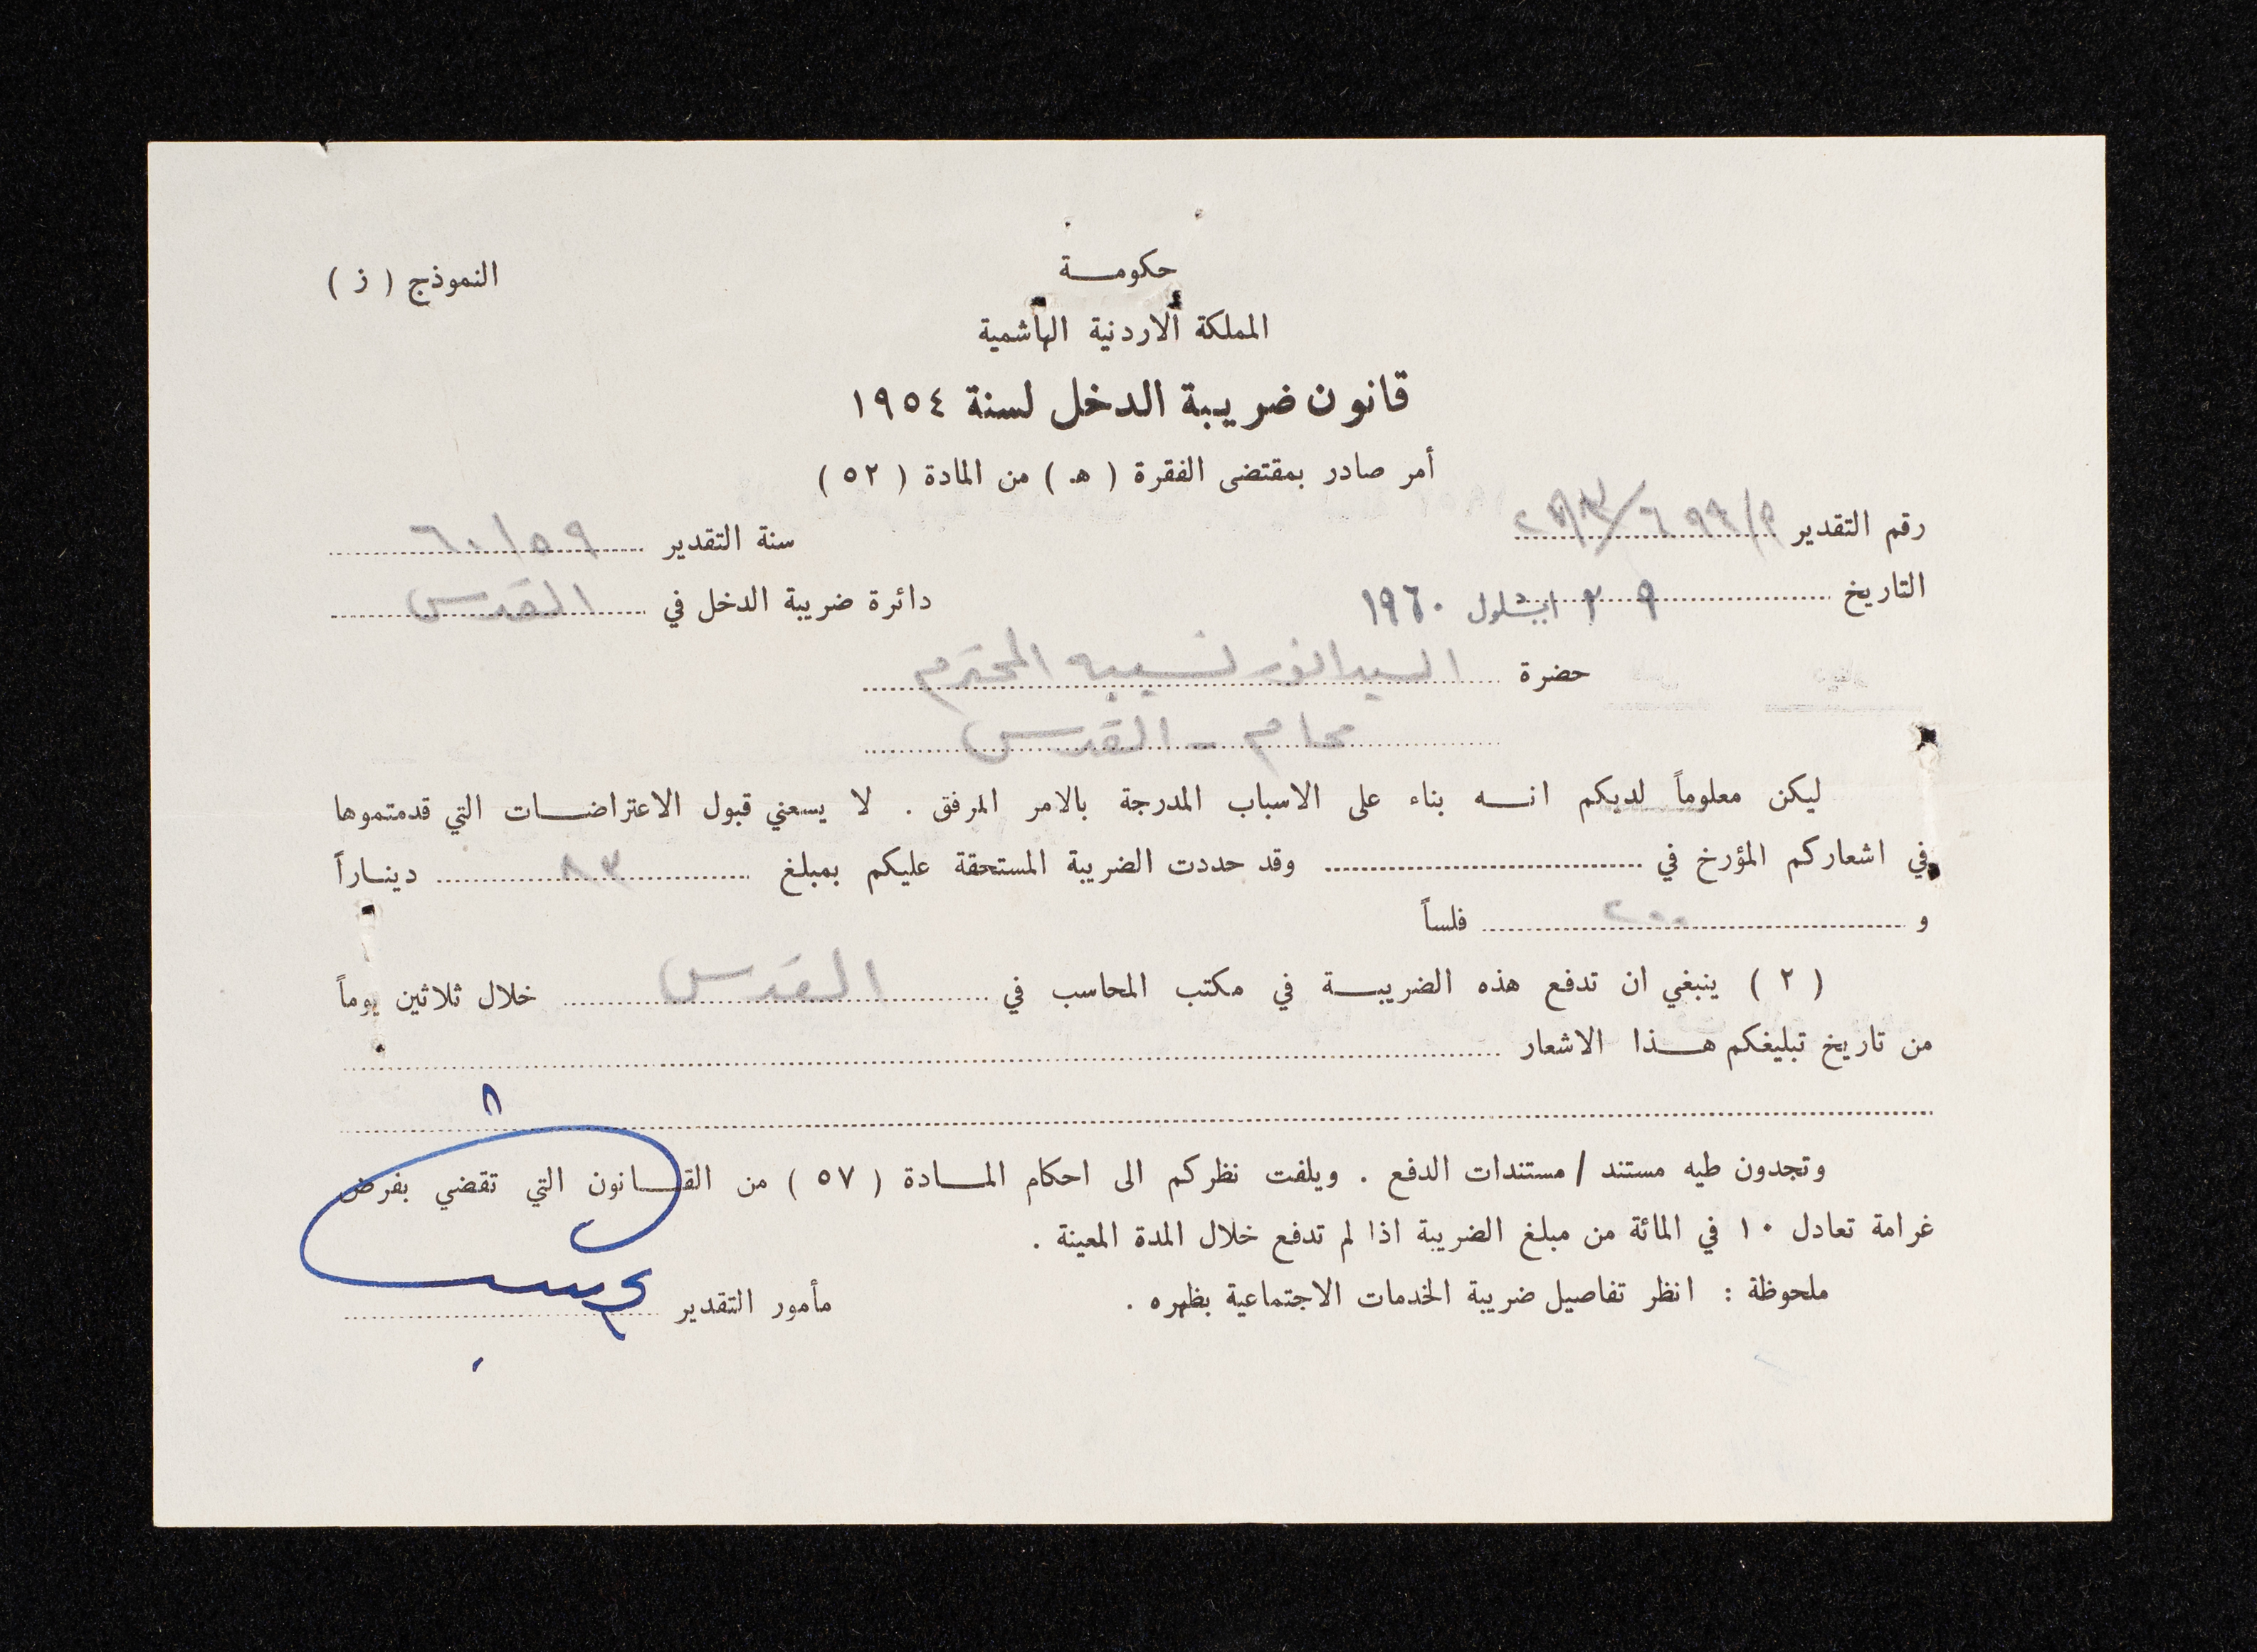 النموذج ( ز )
حكومـــة
المملكة الاردنية الهاشمية
قانون ضريبة الدخل لسنة ١٩٥٤
أمر صادر بمقتضى الفقرة ( هـ ) من المادة ( ٥٢ )
رقم التقدير
سنة التقدير ٦٠/٥٩
التاريخ ٢٩ ايلول ١٩٦٠
دائرة ضريبة الدخل في القدس
حضرة السيد انور نسيبه المحترم
محام - القدس
ليكن معلوماً لديكم انـــه بناء على الاسباب المدرجة بالامر المرفق . لا يسعني قبول الاعتراضـــات التي قدمتموها
في اشعاركم المؤرخ في وقد حددت الضريبة المستحقة عليكم بمبلغ ٨٣ دينـاراً
و ٢٠٠ فلساً
( ٢ ) ينبغي ان تدفع هذه الضريبـــة في مكتب المحاسب في القدس خلال ثلاثين يوماً
من تاريخ تبليغكم هـــذا الاشعار
وتجدون طيه مستند / مستندات الدفع . ويلفت نظركم الى احكام المـــادة ( ٥٧ ) من القـــانون التي تقضي بفرض
غرامة تعادل ١٠ في المائة من مبلغ الضريبة اذا لم تدفع خلال المدة المعينة .
ملحوظة : انظر تفاصيل ضريبة الخدمات الاجتماعية بظهره .
مأمور التقدير